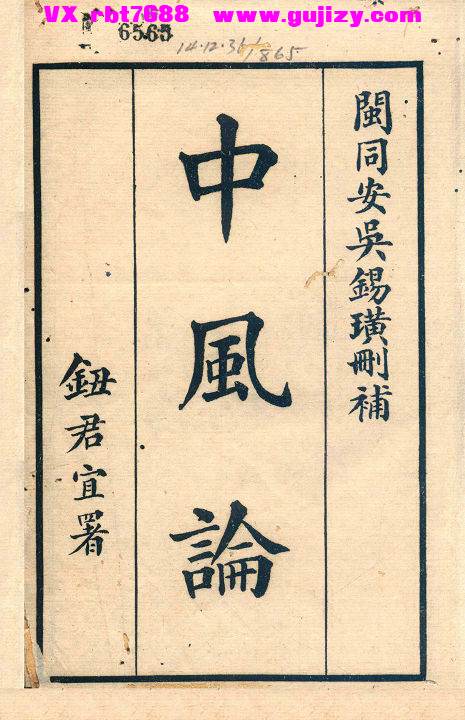 VX rbt7688 www.gujizy.com
6565
14.12.31
1865
閩同安吳錫璜刪補
中風論
鈕君宜署